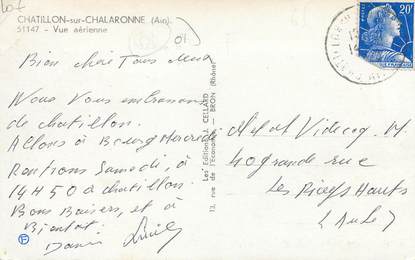 CHATILLON-sur-CHALARONNE (Ain)
51147 - Vue aérienne
01
Bien chère Tous deux
Nous Vous embrassons
de chatillon.
Allons à Bourg Mercredi
Rentrons Samedi, à
14H50 à chatillon.
Bons Baisers, et à
Bientôt.
Les Editions J. CELLARD
13, rue de l'Economie — BRON (Rhône)
20F
M et Me
40 grande rue
Les Riceys Hauts
(Aube)